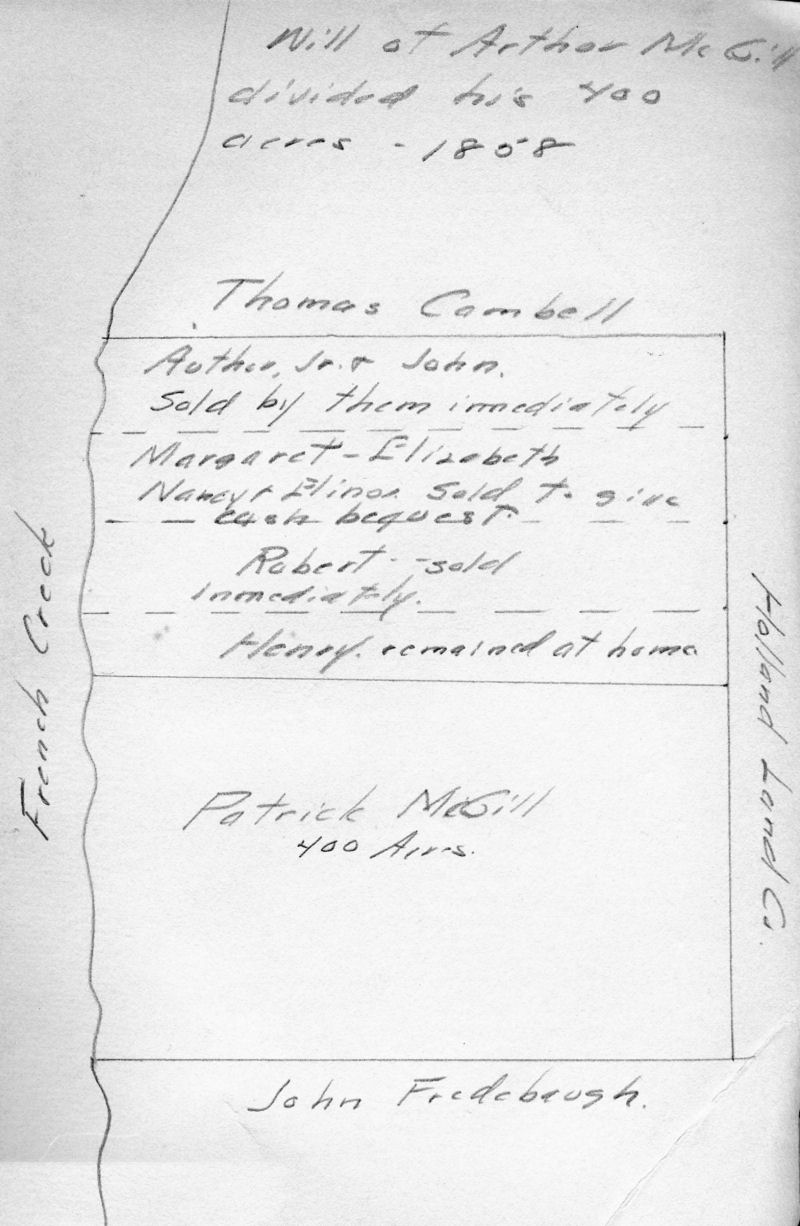 Will of Arthor McGill
divided his 400
acres - 1858
Thomas Cambell
Author, Jr. & John.
Sold by them immediately
Margaret - Elizabeth
Nancy & Elinor Sold to give
cash bequest.
Robert - sold
immediately.
Henry. remained at home
Patrick McGill
400 Acrs.
John Fredebaugh.
French Creek
Holland Land Co.